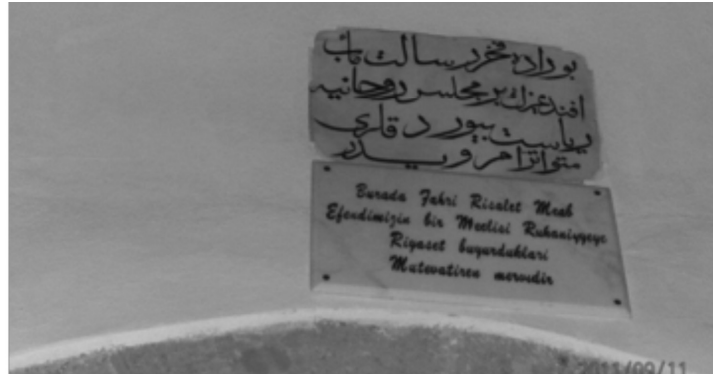 بوراده فخر رسالت مآب
افندیمزك بر مجلس روحانیه
ریاست بیوردقلری
متواترا مرویدر
Burada Fahri Risalet Meab
Efendimizin bir Meclisi Ruhaniyyeye
Riyaset buyurduklari
Mutevatiren mervidir
2011/09/11